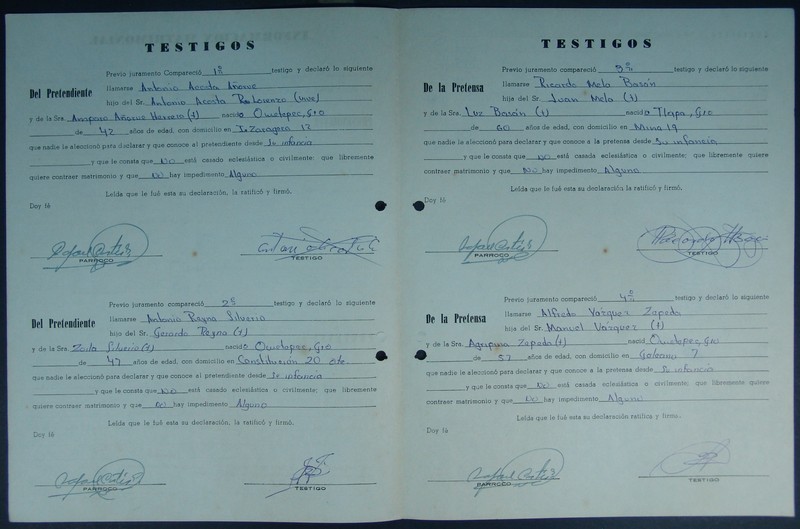 TESTIGOS
Previo juramento Compareció 1º testigo y declaró lo siguiente
Del Pretendiente
llamarse Antonio Acosta Añorve
hijo del Sr. Antonio Acosta
y de la Sra. Amparo Añorve Herrera (+) nació Ometepec, Gro
de 42 años de edad, con domicilio en I. Zaragoza 12
que nadie le aleccionó para declarar y que conoce al pretendiente desde Su infancia
y que le consta que NO está casado eclesiástica o civilmente; que libremente
quiere contraer matrimonio y que NO hay impedimento Alguno
Leída que le fué esta su declaración, la ratificó y firmó.
Doy fé
PARROCO
TESTIGO
Previo juramento compareció 2º testigo y declaró lo siguiente
Del Pretendiente
llamarse Antonio Reyna Silverio
hijo del Sr. Gerardo Reyna (+)
y de la Sra. Zoila Silverio (+) nació Ometepec, Gro
de 47 años de edad, con domicilio en Constitución 20 ote.
que nadie le aleccionó para declarar y que conoce al pretendiente desde Su infancia
y que le consta que NO está casado eclesiástica o civilmente: que libremente
quiere contraer matrimonio y que NO hay impedimento Alguno
Leída que le fué esta su declaración, la ratificó y firmó.
Doy fé
PARROCO
TESTIGO
TESTIGOS
Previo juramento compareció 3º testigo y declaró lo siguiente
De la Pretensa
llamarse Ricardo Melo Bazán
hijo del Sr. Juan Melo (+)
y de la Sra. Luz Bazán (+) nació Tlapa, Gro
de 60 años de edad, con domicilio en Mina 19
que nadie le aleccionó para declarar y que conoce a la pretensa desde Su infancia
y que le consta que NO está casada eclesiástica o civilmente: que libremente quiere
contraer matrimonio y que NO hay impedimento Alguno
Leída que le fué esta su declaración la ratificó y firmó.
Doy fé
PARROCO
TESTIGO
Previo juramento compareció 4º testigo y declaró lo siguiente:
De la Pretensa
llamarse Alfredo Vázquez Zapeda
hijo del Sr. Manuel Vázquez (+)
y de la Sra. Agripina Zepeda (+) nació Ometepec, Gro
de 57 años de edad, con domicilio en Galeana 7
que nadie le aleccionó para declarar y que conoce a la pretensa desde Su infancia
y que le consta que NO está casada eclesiástica o civilmente; que libremente quiere
contraer matrimonio y que NO hay impedimento Alguno
Leída que le fué esta su declaración ratifica y firmó.
Doy fé
PARROCO
TESTIGO